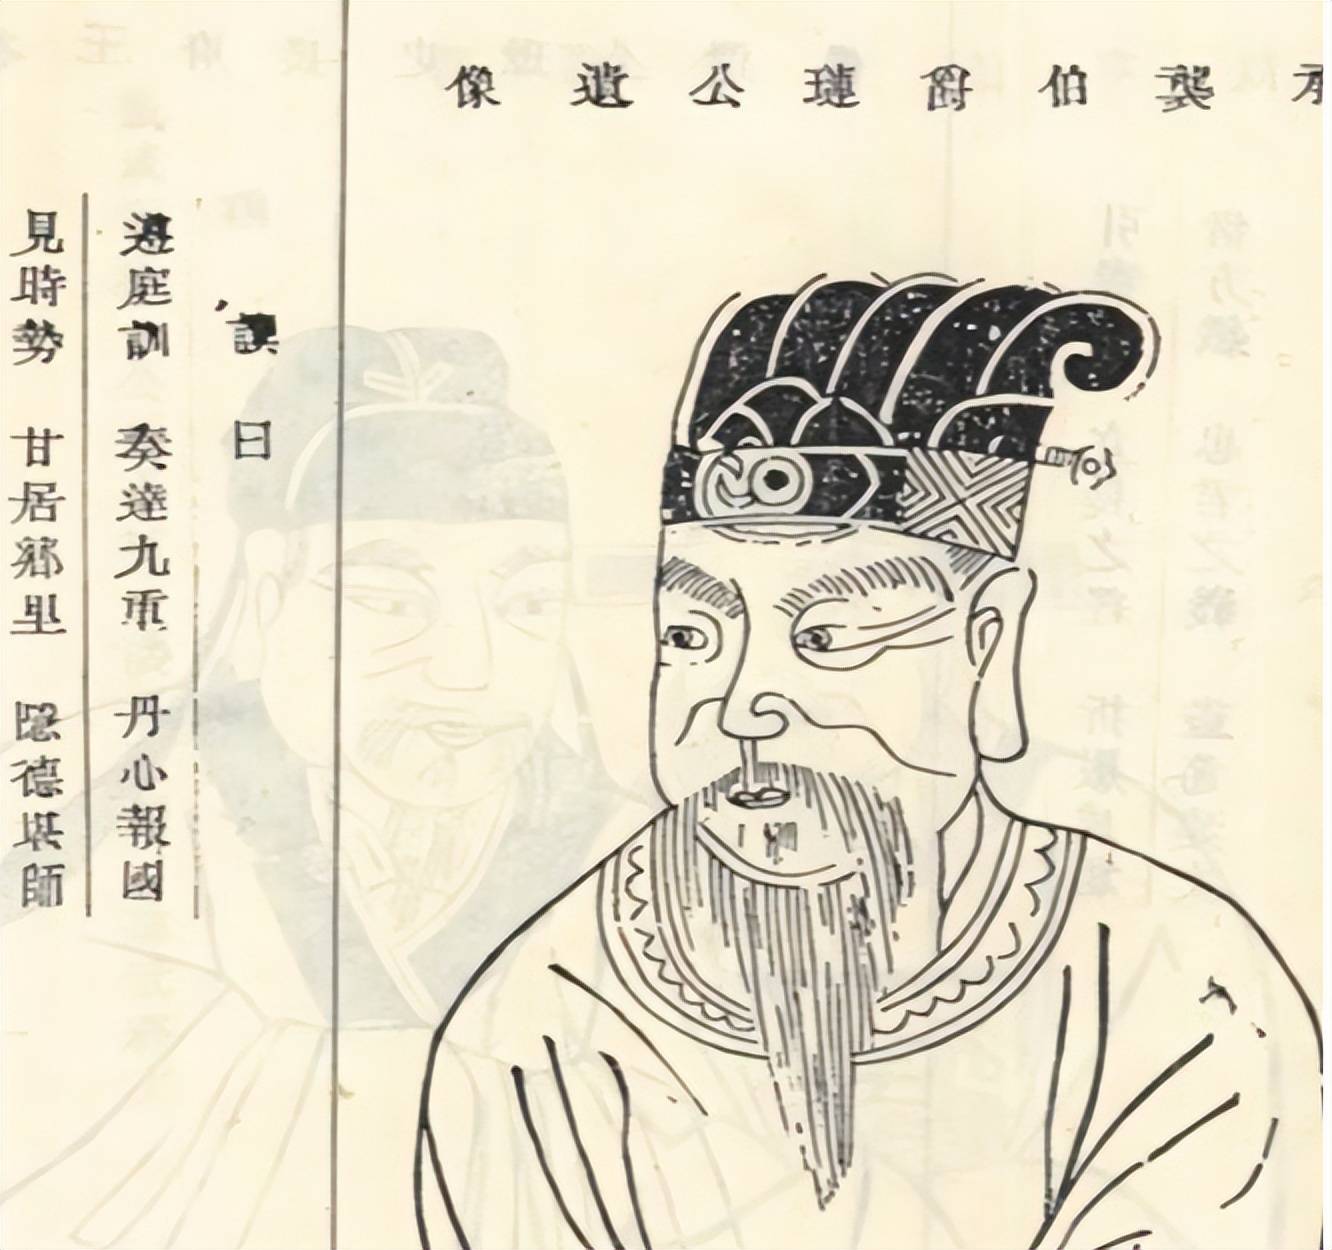 襲伯爵璉公遺像
曰
遵庭訓 奏達九重 丹心報國
見時勢 甘居鄉里 隱德堪師